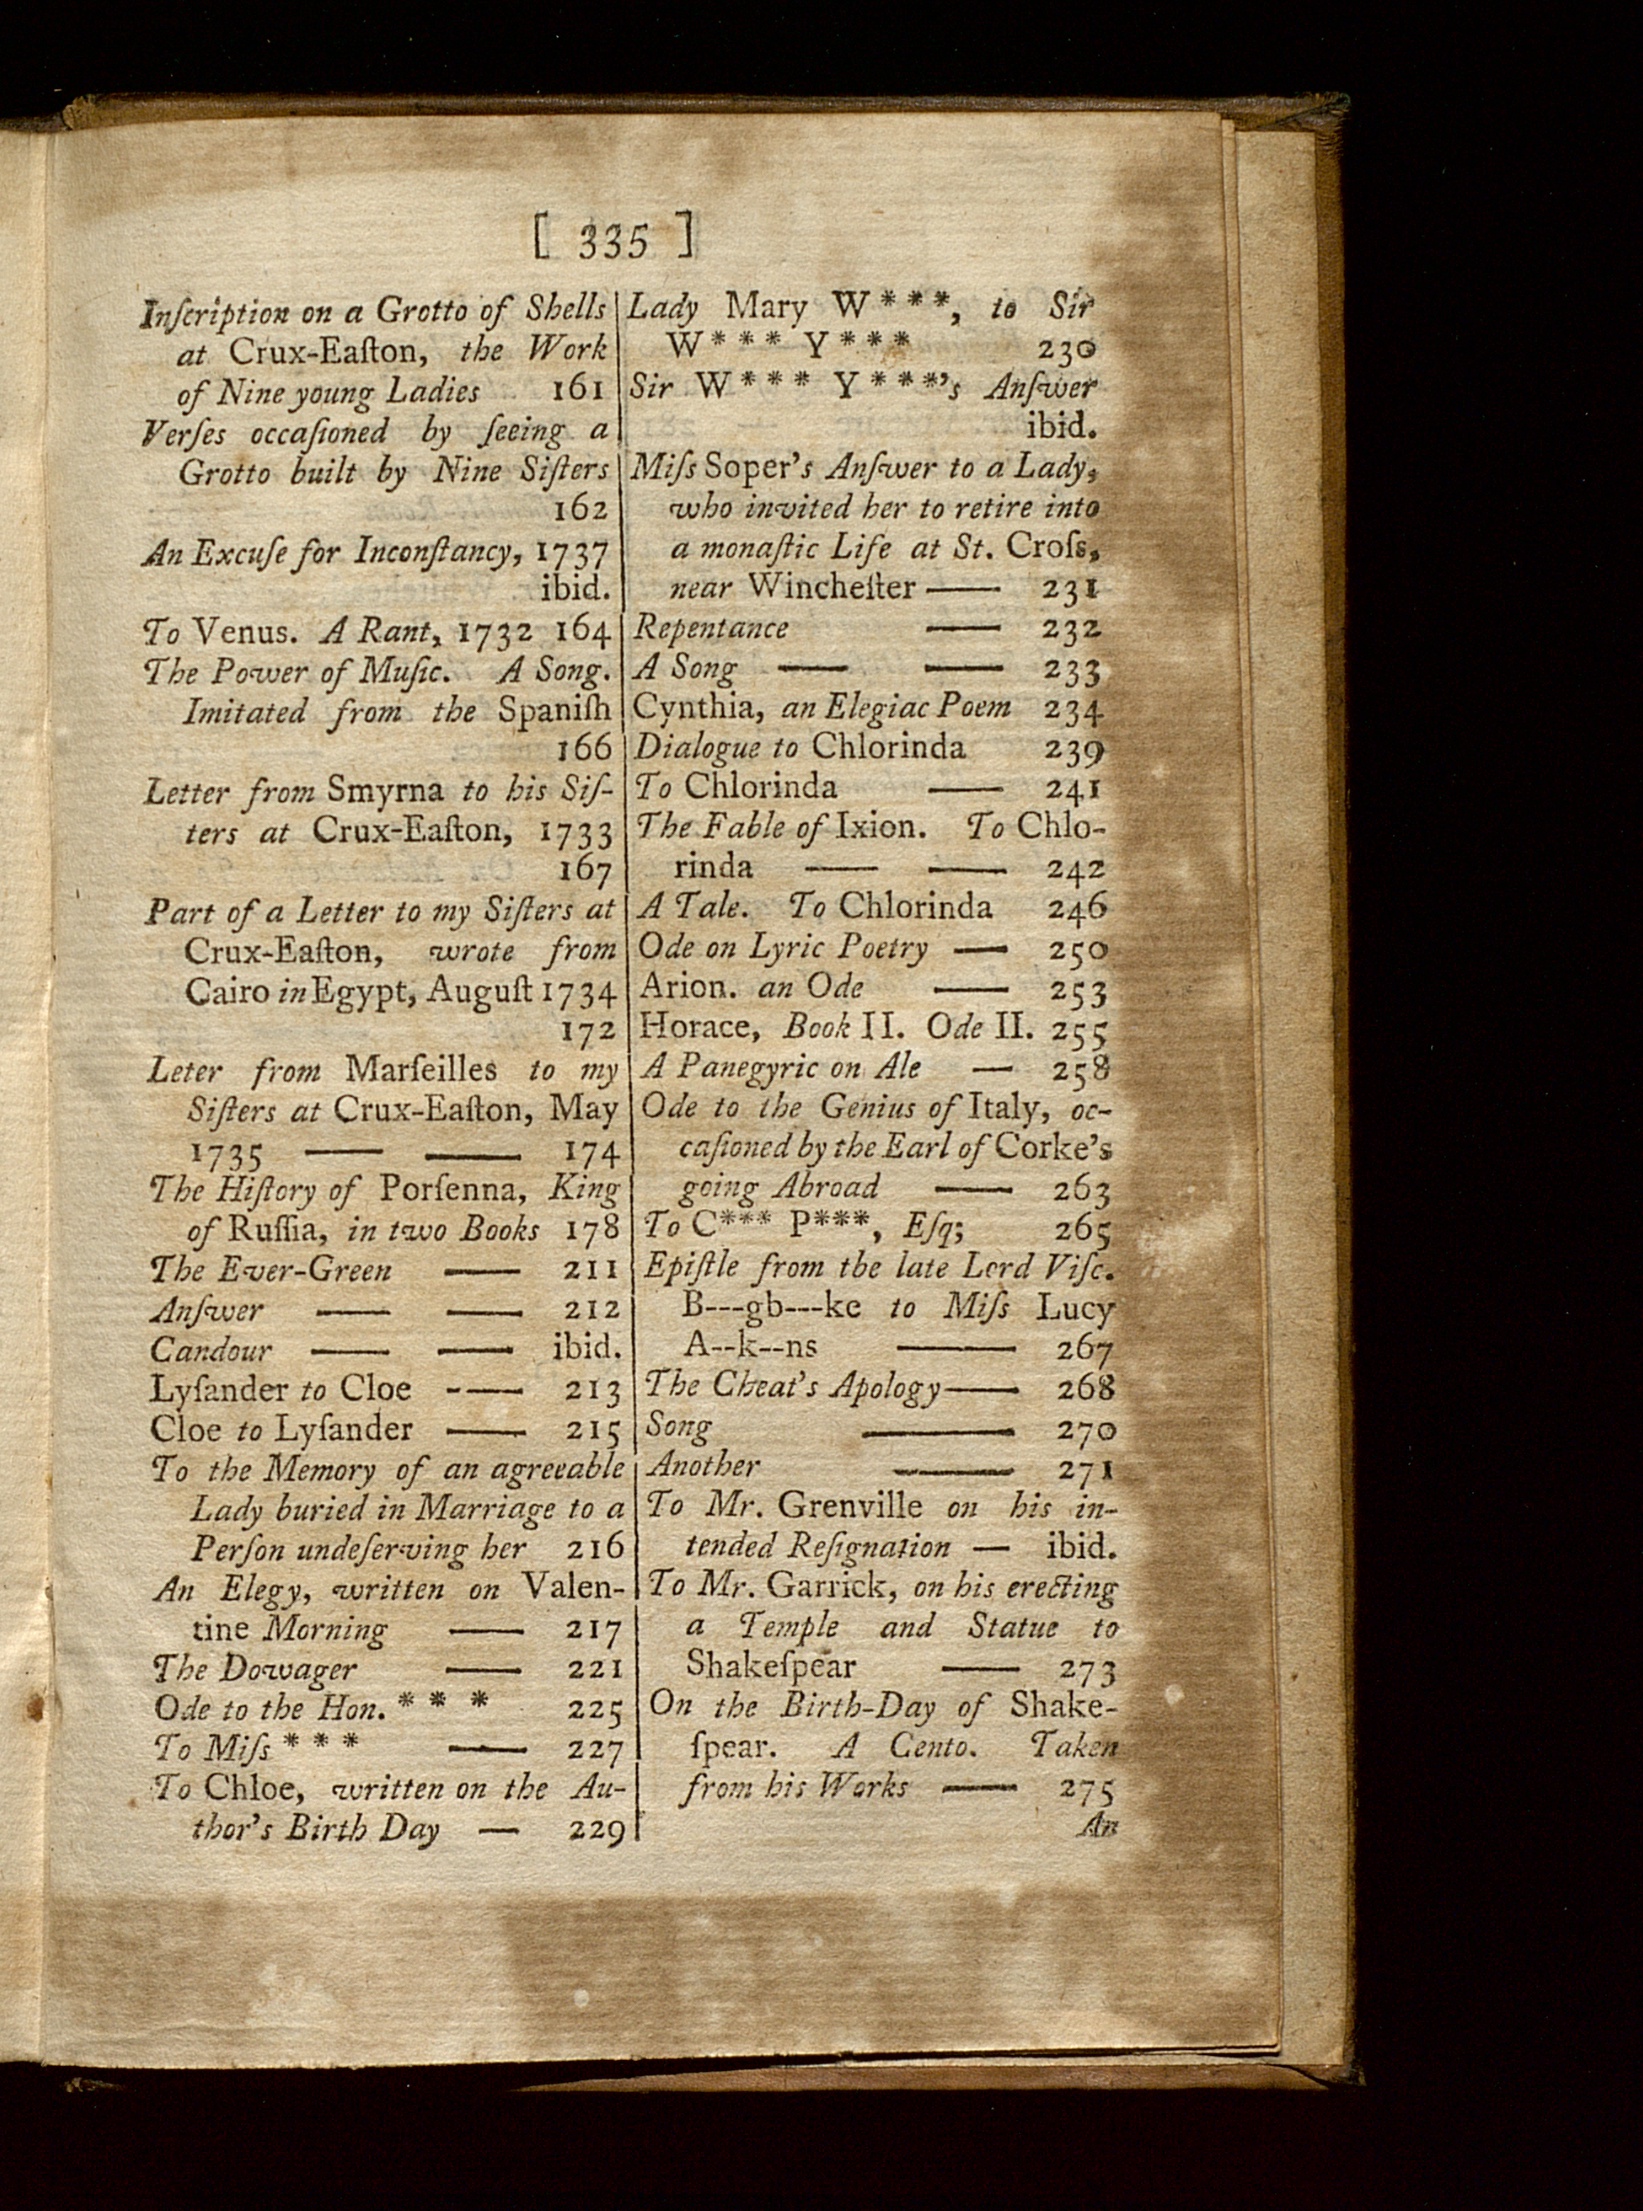 [ 335 ]
Inſcription on a Grotto of Shells
at Crux-Eaſton, the Work
of Nine young Ladies 161
Verſes occaſioned by ſeeing a
Grotto built by Nine Siſters
162
An Excuſe for Inconſtancy, 1737
ibid.
To Venus. A Rant, 1732 164
The Power of Muſic. A Song.
Imitated from the Spaniſh
166
Letter from Smyrna to his Siſ-
ters at Crux-Eaſton, 1733
167
Part of a Letter to my Siſters at
Crux-Eaſton, wrote from
Cairo in Egypt, Auguſt 1734
172
Leter from Marſeilles to my
Siſters at Crux-Eaſton, May
1735 — — 174
The Hiſtory of Porſenna, King
of Ruſſia, in two Books 178
The Ever-Green — 211
Anſwer — — 212
Candour — — ibid.
Lyſander to Cloe -— 213
Cloe to Lyſander — 215
To the Memory of an agreeable
Lady buried in Marriage to a
Perſon undeſerving her 216
An Elegy, written on Valen-
tine Morning — 217
The Dowager — 221
Ode to the Hon. * * * 225
To Miſs * * * — 227
To Chloe, written on the Au-
thor's Birth Day — 229
Lady Mary W * * *, to Sir
W * * * Y * * * 230
Sir W * * * Y * * *'s Anſwer
ibid.
Miſs Soper's Anſwer to a Lady,
who invited her to retire into
a monaſtic Life at St. Croſs,
near Wincheſter — 231
Repentance — 232
A Song — — 233
Cynthia, an Elegiac Poem 234
Dialogue to Chlorinda 239
To Chlorinda — 241
The Fable of Ixion. To Chlo-
rinda — — 242
A Tale. To Chlorinda 246
Ode on Lyric Poetry — 250
Arion. an Ode — 253
Horace, Book II. Ode II. 255
A Panegyric on Ale — 258
Ode to the Genius of Italy, oc-
caſioned by the Earl of Corke's
going Abroad — 263
To C*** P***, Eſq; 265
Epiſtle from tbe late Lord Viſc.
B---gb---ke to Miſs Lucy
A--k--ns — 267
The Cheat's Apology — 268
Song — 270
Another — 271
To Mr. Grenville on his in-
tended Reſignation — ibid.
To Mr. Garrick, on his erecting
a Temple and Statue to
Shakeſpear — 273
On the Birth-Day of Shake-
ſpear. A Cento. Taken
from his Works — 275
An